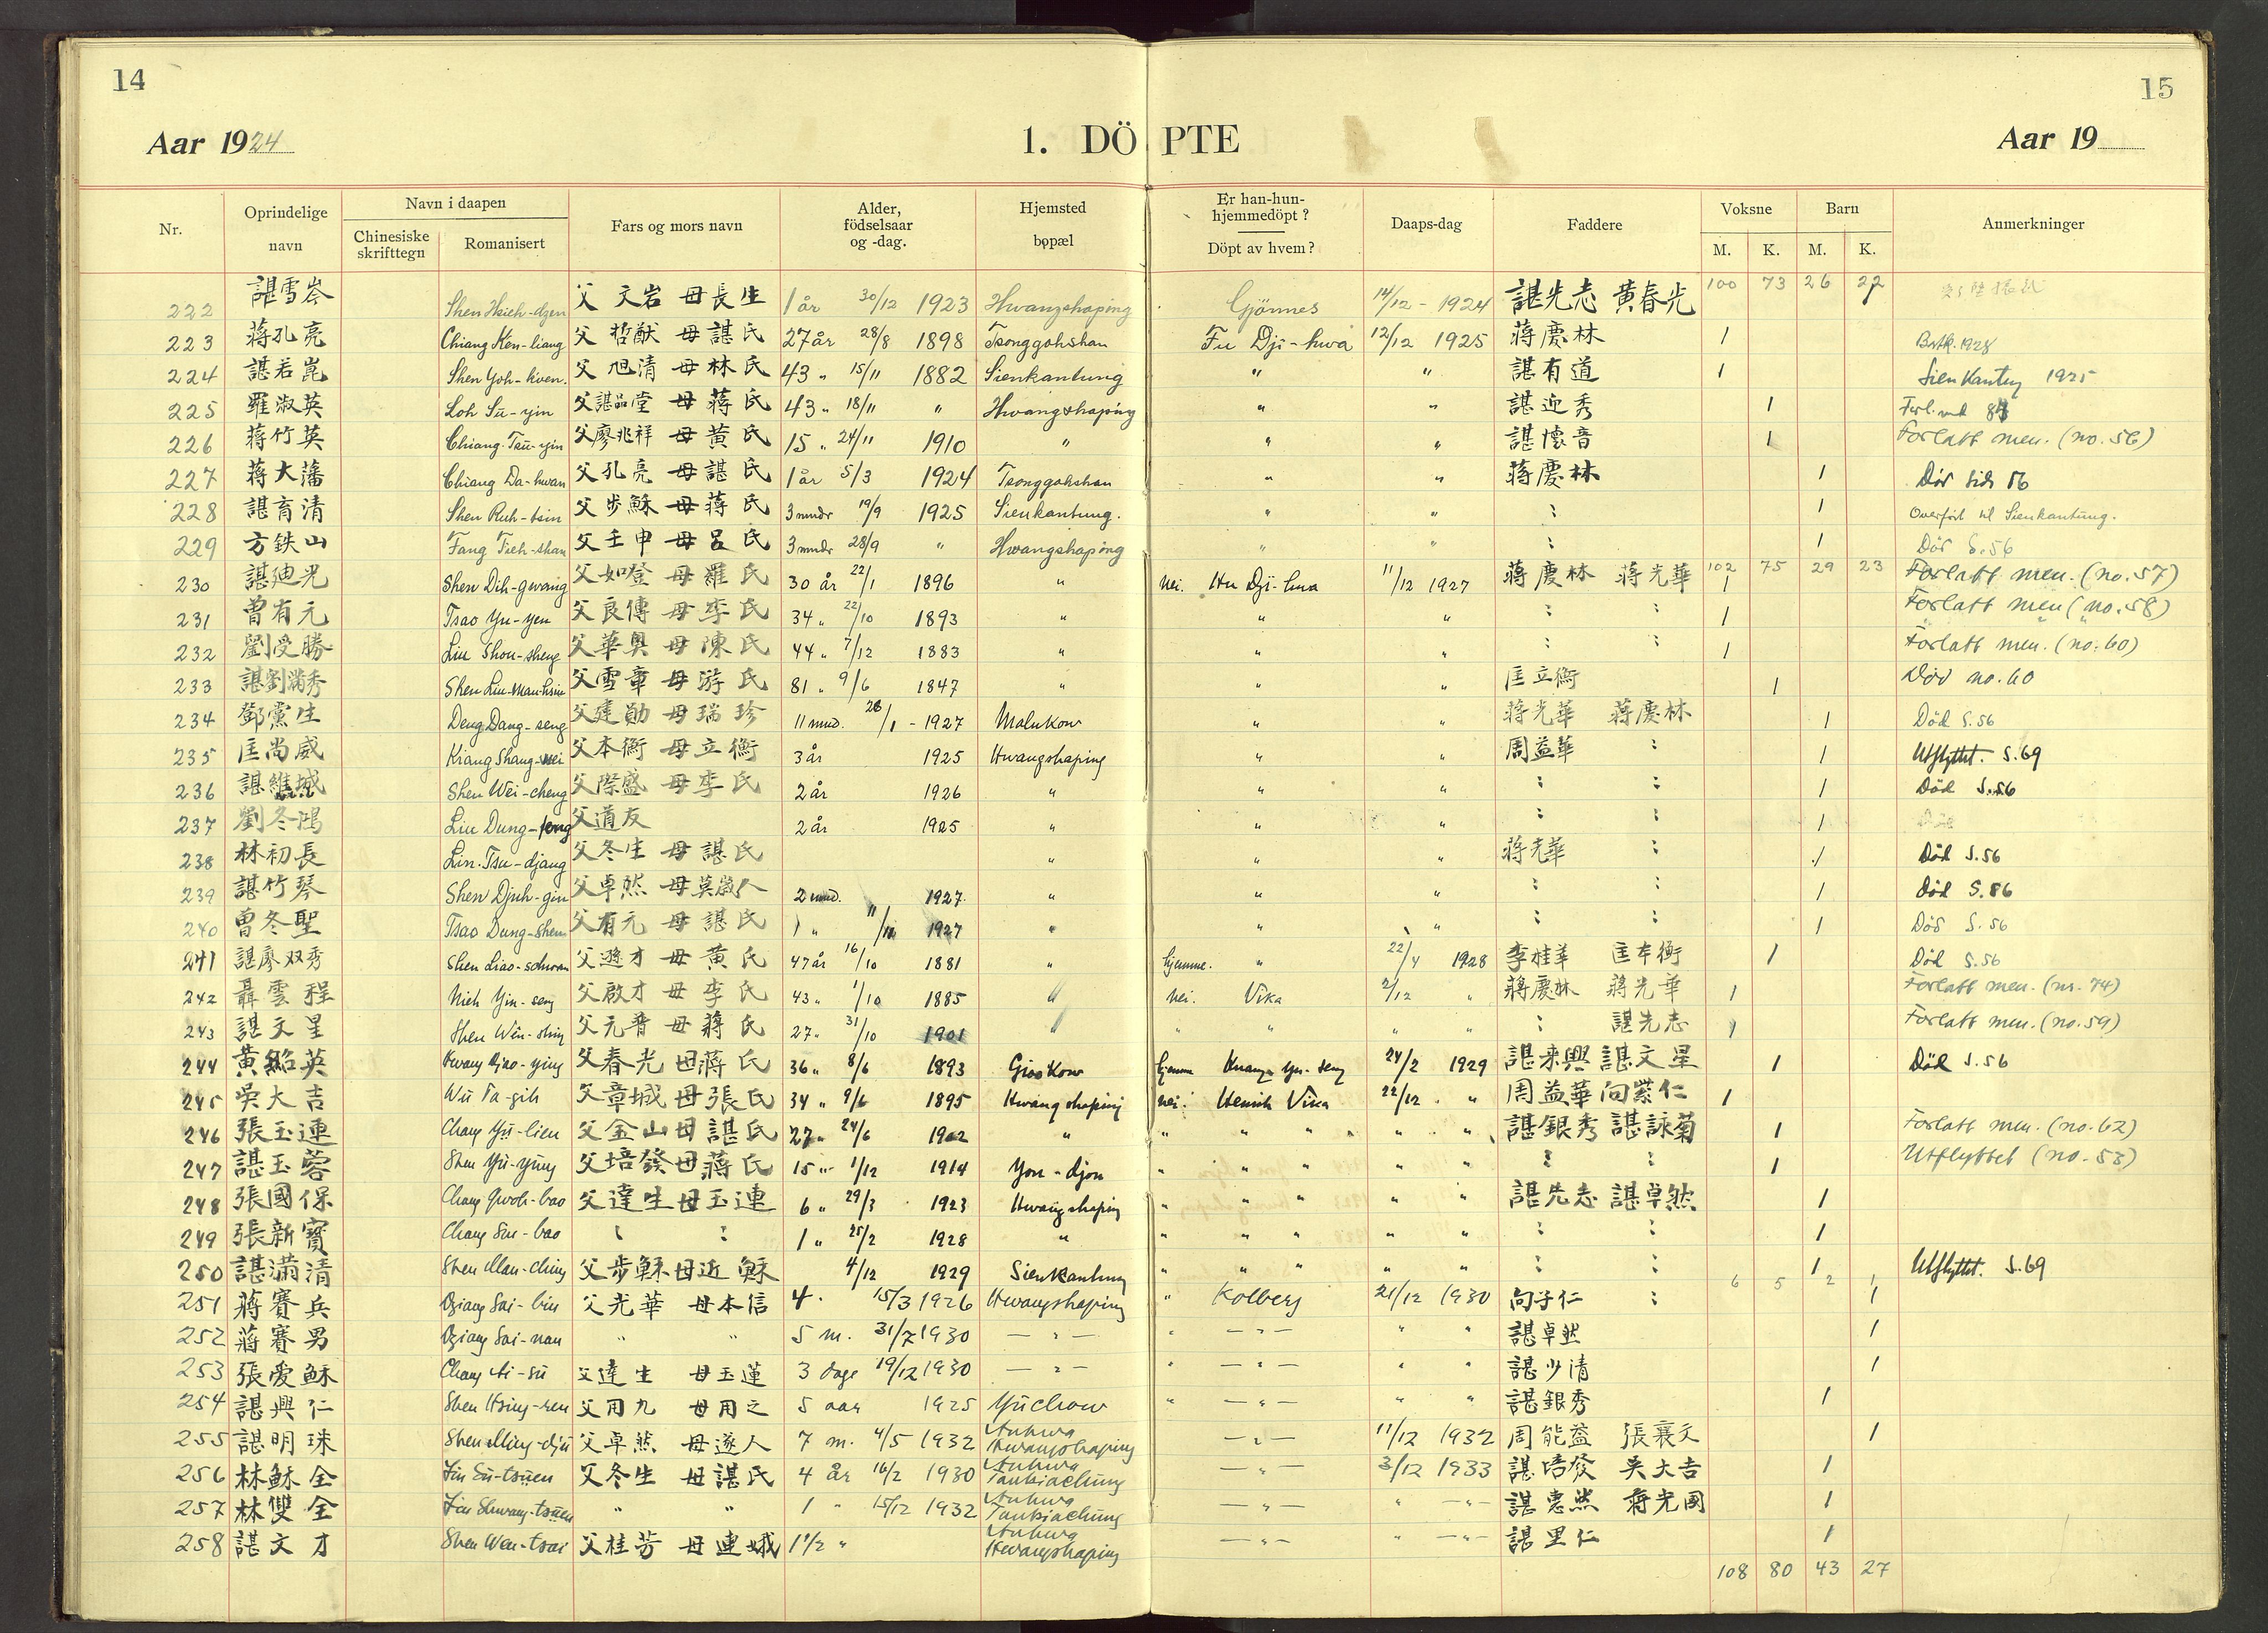 14
15
Aar 1924
1. DÖPTE
Aar 19
Nr. Oprindelige navn Navn i daapen Chinesiske skrifttegn Romanisert Fars og mors navn Alder, födselsaar og -dag. Hjemsted bopæl Er han-hun-hjemmedöpt? Döpt av hvem? Daaps-dag Faddere Voksne M. K. Barn M. K. Anmerkninger
222 諶雪岺 Shen Hsieh-dzen 父 文岩 母長生 1 år 30/12 1923 Hwangshaping Gjönnes 14/12 - 1924 諶先志 黄春光 100 73 26 22
223 蔣孔亮 Chiang Ken-liang 父 哲猷 母諶氏 27 år 28/8 1898 Tsonggohshan Fu Dji-hwa 12/12 1925 蔣慶林 1 1928
224 諶若崑 Shen Yoh-kwen. 父 旭清 母林氏 43 " 15/11 1882 Sienkantung " " 諶有道 1 Sienkantung 1925
225 羅淑英 Loh Su-yin 父諶品堂 母蔣氏 43 " 18/11 " Hwangshaping " " 諶迎秀 1
226 蔣竹英 Chiang Tsu-yin 父廖兆祥 母黄氏 15 " 24/11 1910 " " " 諶懷音 1 Forlatt men. (no. 56)
227 蔣大藩 Chiang Da-hwan 父孔亮 母諶氏 1 år 5/3 1924 Tsonggohshan " " 蔣慶林 1 Död side 56
228 諶育清 Shen Ruh-tsin 父步穌 母蔣氏 3 mndr 19/9 1925 Sienkantung. " " : 1 Overfört til Sienkantung.
229 方鉄山 Fang Tieh-shan 父壬申 母呂氏 3 mndr 28/9 " Hwangshaping " " : 1 Död S. 56
230 諶廸光 Shen Dih-gwang 父如登 母羅氏 30 år 22/1 1896 " nei. Hu Dji-hua 11/12 1927 蔣慶林 蔣光華 102 75 29 23 1 Forlatt men. (no. 57)
231 曾有元 Tsao Yu-yen 父良傳 母李氏 34 " 22/10 1893 " " " : : 1 Forlatt men (no. 58)
232 劉受勝 Liu Shou-sheng 父華奥 母陳氏 44 " 7/12 1883 " " " : : 1 Forlatt men. (no. 60)
233 諶劉满秀 Shen Liu-Man-hsiu 父雪章 母游氏 81 " 9/6 1847 " " " 匡立衡 1 Död no. 60
234 鄧黨生 Deng Dang-seng 父建勛 母瑞珍 11 mnd. 26/1 - 1927 Malukow " " 蔣光華 蔣慶林 1 Död S. 56
235 匡尚威 Kiang Shang-wei 父本衡 母立衡 3 år 1925 Hwangshaping " " 周益華 : 1 Utflyttet. S. 69
236 諶維城 Shen Wei-cheng 父際盛 母李氏 2 år 1926 " " " : : 1 Död S. 56
237 劉冬鴻 Liu Dung-feng 父道友 2 år 1925 " " " : : 1
238 林初長 Lin Tsu-djang 父冬生 母諶氏 " " " 蔣光華 : 1 Död S. 56
239 諶竹琴 Shen Djuh-gin 父卓然 母莫 2 mnd. 1927 " " " : : 1 Död S. 86
240 曾冬聖 Tsao Dung-shen 父有元 母諶氏 1 " 11/11 1927 " " " : : 1 Död S. 56
241 諶廖双秀 Shen Liao-schwan 父遊才 母黄氏 47 år 16/10 1881 " hjemme. " 22/4 1928 李桂華 匡本衡 1 Död S. 56
242 聶雲程 Nieh Yin-seng 父啟才 母李氏 43 " 1/10 1885 " nei. Vika 2/12 " 蔣慶林 蔣光華 1 Forlatt men. (nr. 74)
243 諶文星 Shen Wen-shing 父元普 母蔣氏 27 " 31/10 1901 " " " " " : 諶先志 1 Forlatt men. (no. 59)
244 黄紹英 Hwang Djao-ying 父春光 母蔣氏 36 " 8/6 1893 Giaokow hjemme Huang Yu-seng 24/2 1929 諶来興 諶文星 1 Död S. 56
245 吳大吉 Wu Ta-gih 父章城 母張氏 34 " 9/6 1895 Hwangshaping nei. Henrik Vika 22/12 " 周益華 向紫仁 1
246 張玉連 Chang Yü-lien 父金山 母諶氏 27 " 24/6 1902 " " " " " " 諶銀秀 諶詠菊 1 Forlatt men. (no. 62)
247 諶玉蓉 Shen Yü-yung 父培發 母蔣氏 15 " 1/12 1914 You-djou " " " " " : : 1 Utflyttet (no. 53)
248 張國保 Chang Gwoh-bao 父達生 母玉連 6 " 29/3 1923 Hwangshaping " " " " " 諶先志 諶卓然 1
249 張新寶 Chang Sin-bao : : 1 " 25/2 1928 " " " " " " : : 1
250 諶満清 Shen Man-ching 父步穌 母近穌 4/12 1929 Sienkantung " " " " " : : 1 Utflyttet. S. 69
6 5 2 1
251 蔣賽兵 Dziang Sai-bin 父光華 母本信 4. 15/3 1926 Hwangshaping " Kolberg 21/12 1930 向子仁 : 1
252 蔣賽男 Dziang Sai-nan " " 5 m. 31/7 1930 — " — " — " — " " 諶卓然 1
253 張愛穌 Chang Ai-sü 父達生 母玉蓮 3 dage 19/12 1930 — " — " — " — " " 諶少清 1
254 諶興仁 Shen Hsing-ren 父用九 母用之 5 aar 1925 Yüchow " — " — " " 諶銀秀 1
255 諶明珠 Shen Ming-djü 父卓然 母遂人 7 m. 4/5 1932 Anhwa Hwangshaping — " — 11/12 1932 周能益 張襄文 1
256 林穌全 Lin Sü-tsüen 父冬生 母諶氏 4 år 16/2 1930 Anhwa Tankiachung — " — 3/12 1933 諶培發 吳大吉 1
257 林雙全 Lin Shwang-tsüen " " 1 " 15/12 1932 Anhwa Tankiachung — " — " — " — 諶惠然 蔣光國 1
258 諶文才 Shen Wen-tsai 父桂芳 母連娥 1 1/2 " Anhwa Hwangshaping — " — " — " — 諶里仁 1
108 80 43 27